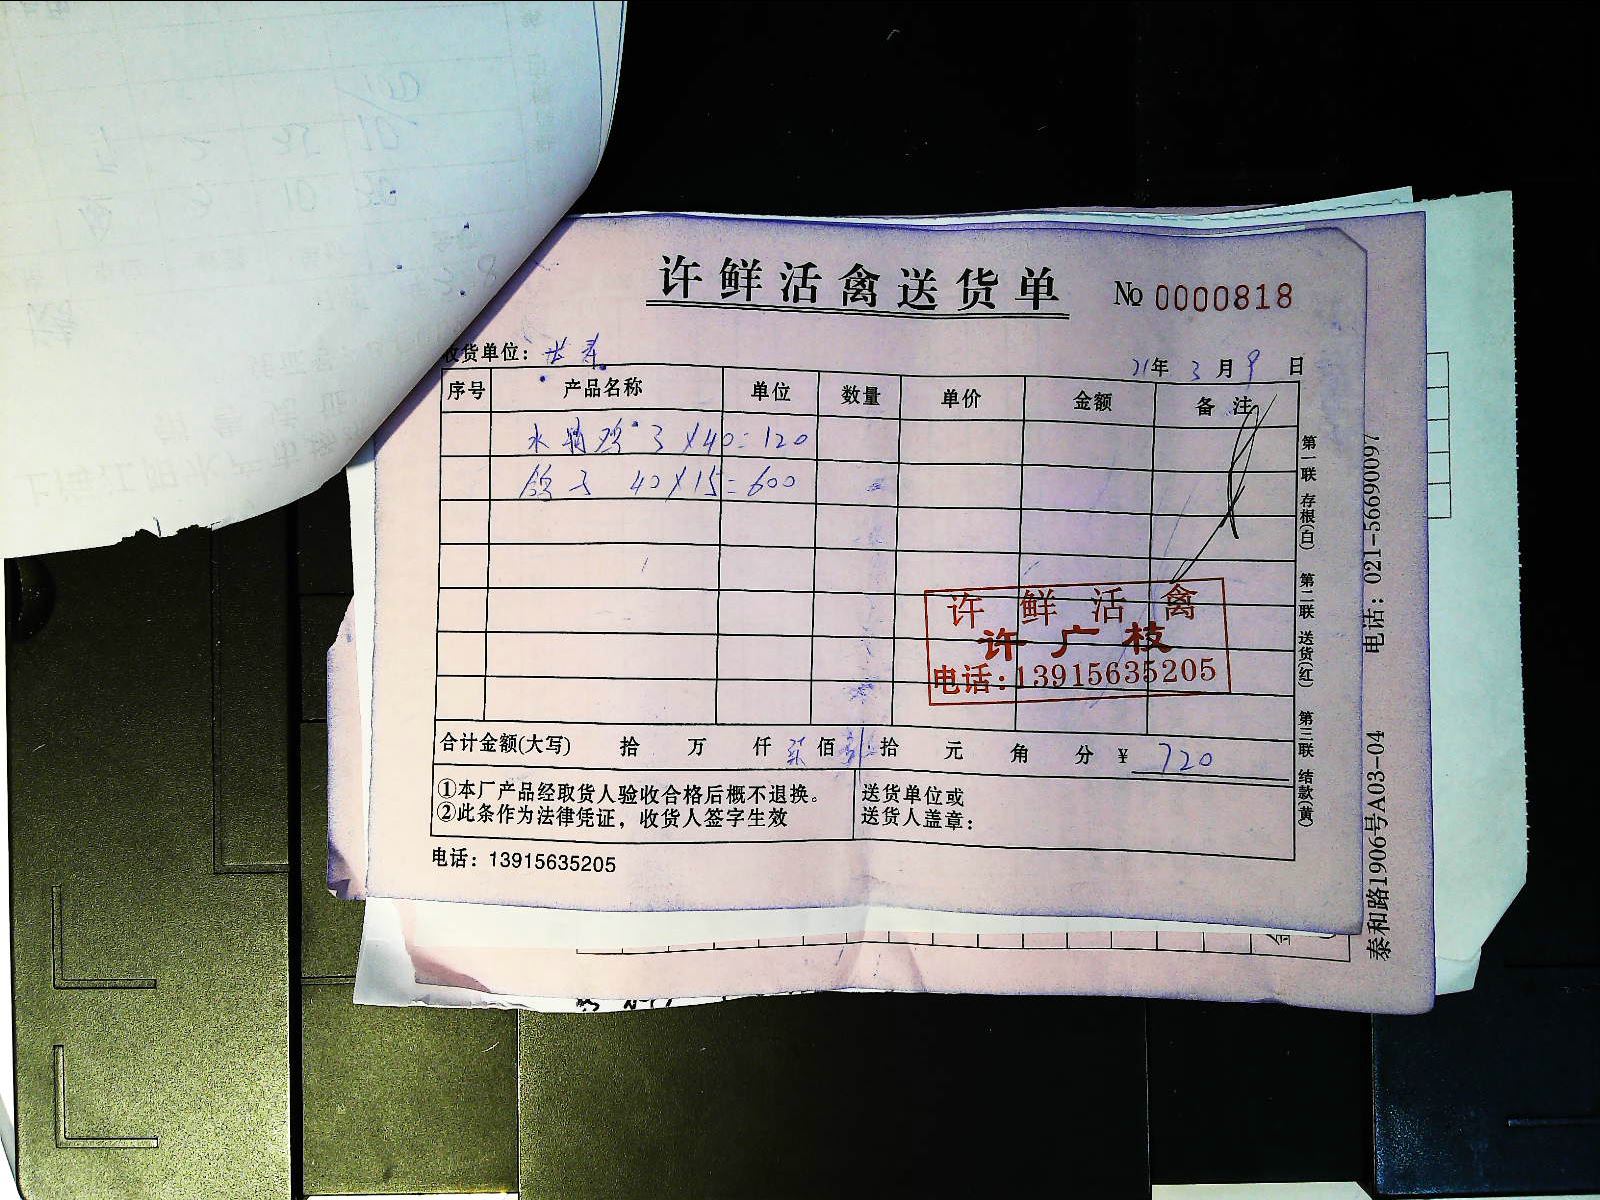 许鲜活禽送货单 № 0000818
收货单位：长寿
21年 3 月 9 日
序号 产品名称 单位 数量 单价 金额 备 注
水鸡 3×40=120
鸽子 40×15=600
许 鲜 活 禽
许广枝
电话:13915635205
合计金额(大写) 拾 万 仟 柒 佰 拾 元 角 分 ¥ 720
①本厂产品经取货人验收合格后概不退换。
②此条作为法律凭证，收货人签字生效
送货单位或
送货人盖章：
电话：13915635205
第一联 存根(白) 第二联 送货(红) 第三联 结款(黄)
泰和路1906号A03-04 电话：021-56690097